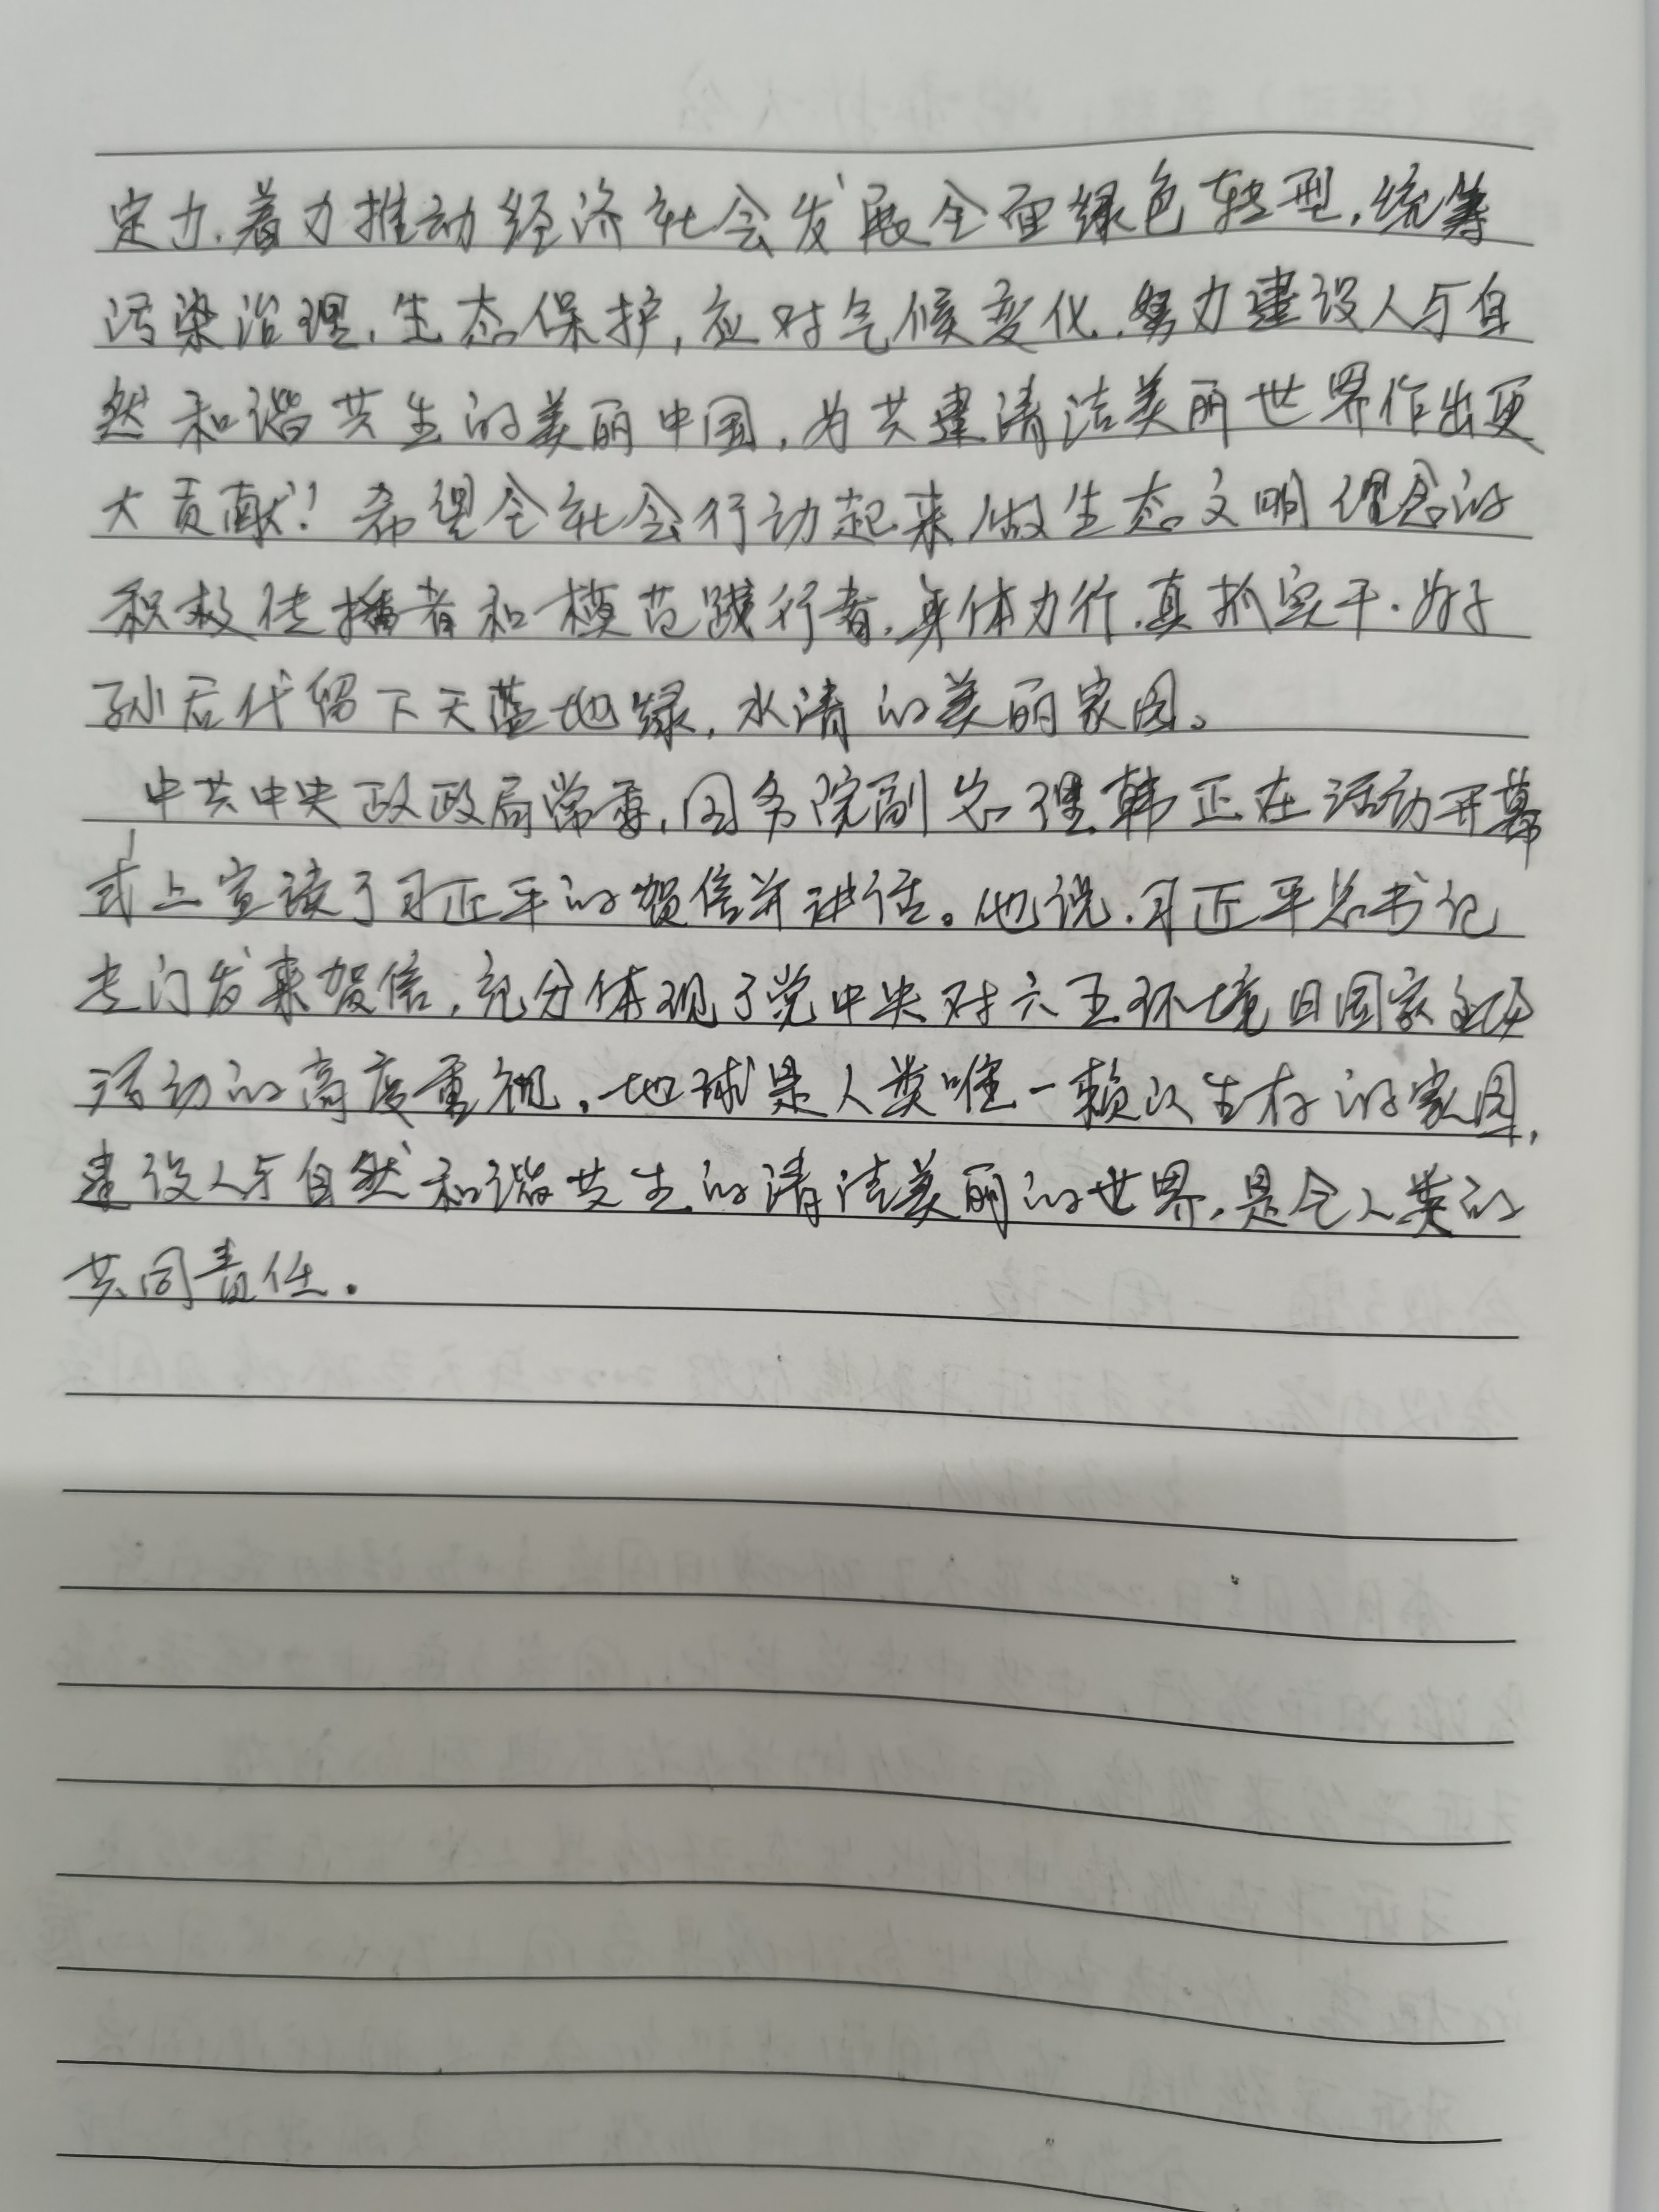 定力，着力推动经济社会发展全面绿色转型，统筹
污染治理，生态保护，应对气候变化，努力建设人与自
然和谐共生的美丽中国，为共建清洁美丽世界作出更
大贡献！希望全社会行动起来做生态文明理念的
积极传播者和模范践行者，身体力行，真抓实干，为子
孙后代留下天蓝地绿，水清的美丽家园。
中共中央政政局常委，国务院副总理韩正在活动开幕
式上宣读了习近平的贺信并讲话。他说，习近平总书记
专门发来贺信，充分体现了党中央对六五环境日国家主场
活动的高度重视，地球是人类唯一赖以生存的家园，
建设人与自然和谐共生的清洁美丽的世界，是全人类的
共同责任。